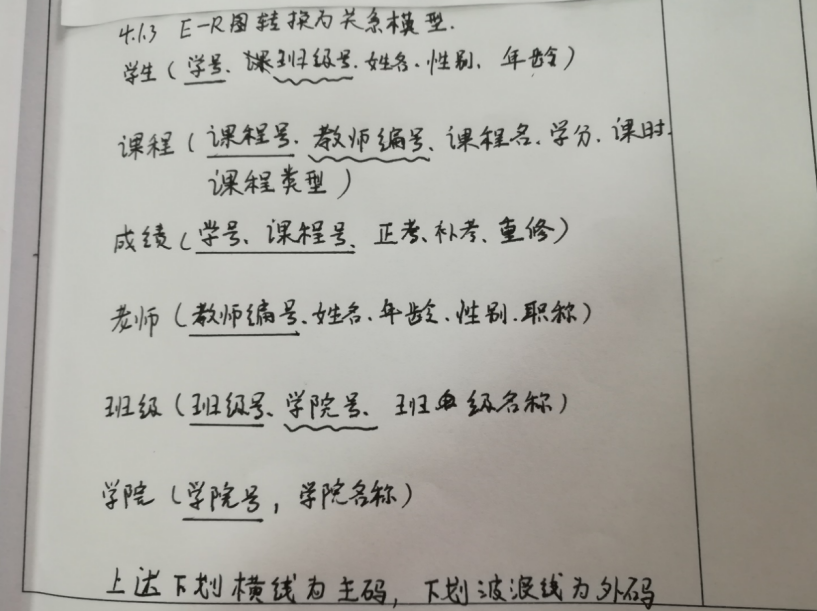 4.1.3 E-R图转换为关系模型.
学生(学号、班级号、姓名、性别、年龄)
课程(课程号、教师编号、课程名、学分、课时、
课程类型)
成绩(学号、课程号、正考、补考、重修)
老师(教师编号、姓名、年龄、性别、职称)
班级(班级号、学院号、班级名称)
学院(学院号,学院名称)
上述下划横线为主码,下划波浪线为外码